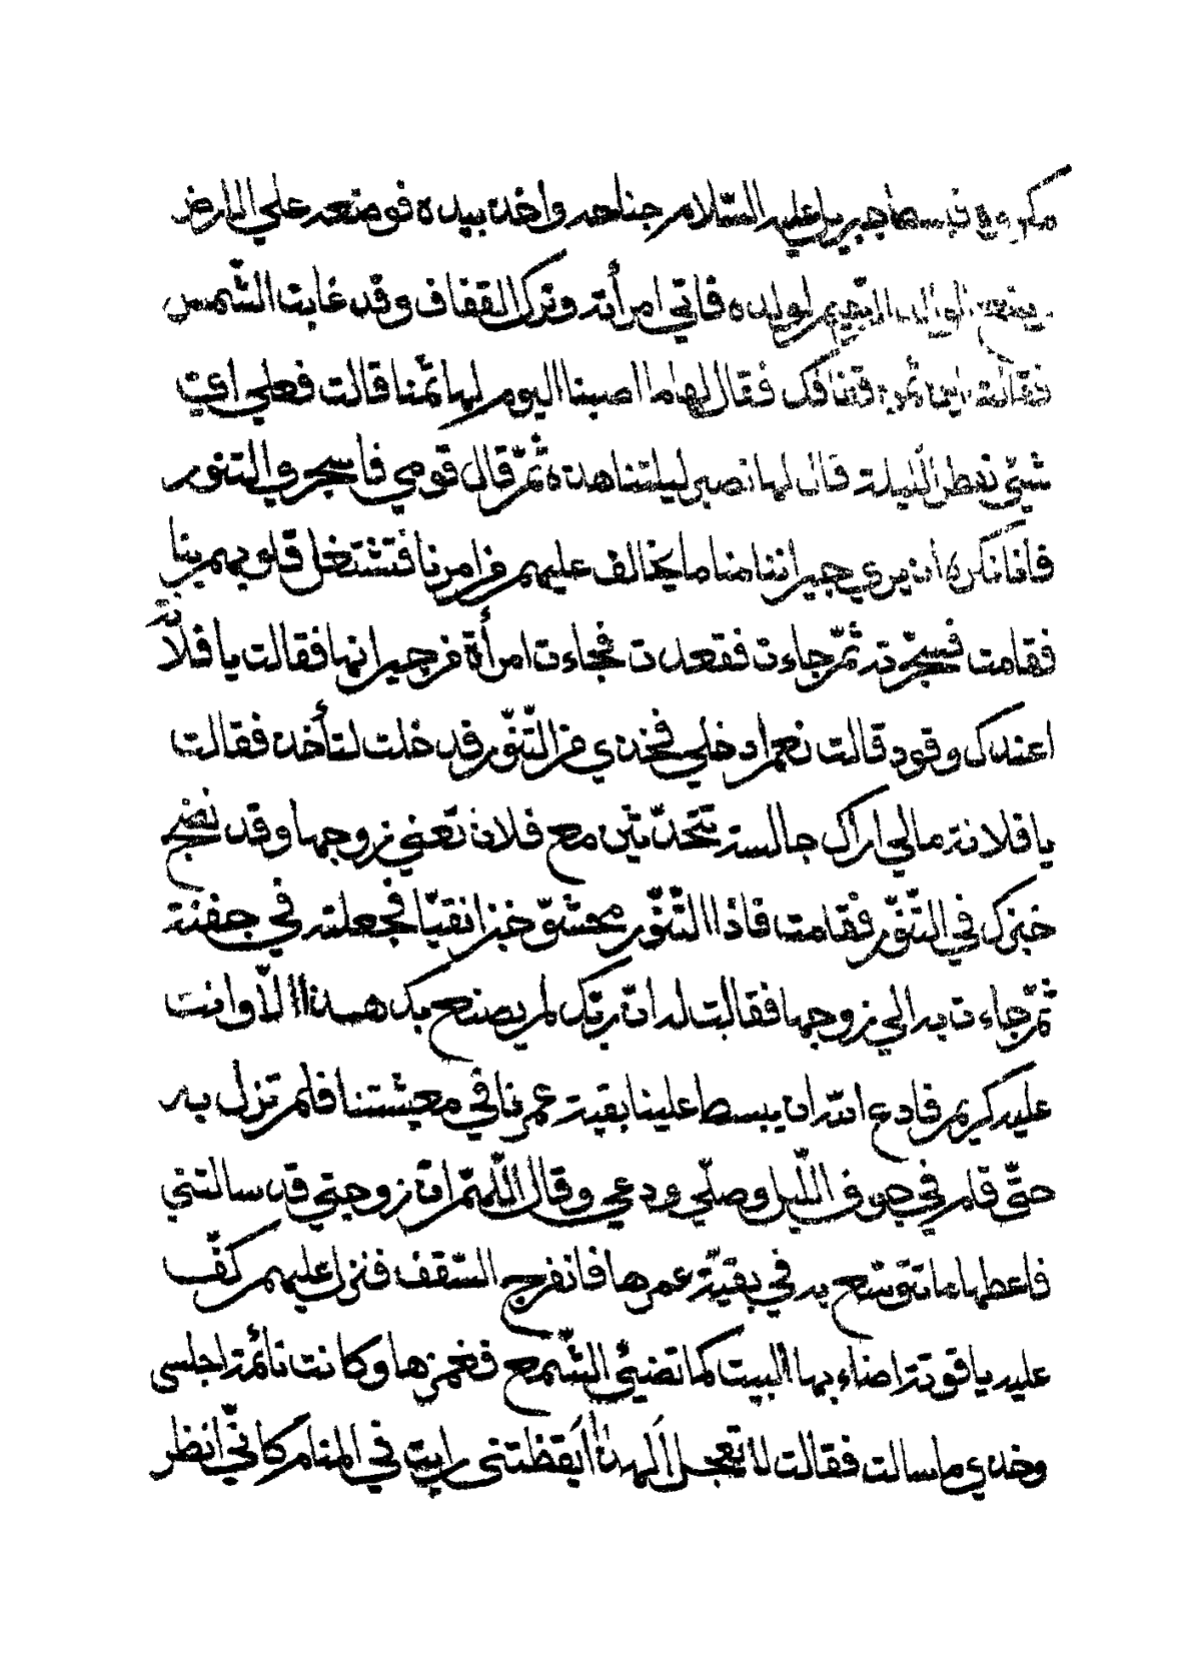 مكروه فبسط جبريل عليه السّلام جناحه واخذه بيده فوضعه علي الارض
الوالد الرّحيم لولده فاتي امرأته وترك القفاف وقد غابت الشّمس
فقالت اين ثمن قفافك فقال لها ما اصبنا اليوم لها ثمنا قالت فعلي اي
شيئ نفطر اللّيلة قال لها نصبر ليلتنا هذه ثمّ قال قومي فاسجري التنور
فانا نكره ان يري جيراننا منا ما يخالف عليهم من امرنا فتشتغل قلوبهم بنا
فقامت فسجّرته ثمّ جاءت فقعدت فجاءت امرأة من جيرانها فقالت يا فلانة
اعندك وقود قالت نعم ادخلي فخذي من التّنّور فدخلت لتأخذ فقالت
يا فلانة مالي اراك جالسة تتحدّثين مع فلان تعني زوجها وقد نضج
خبزك في التّنّور فقامت فاذا التّنّور محشوّ خبزا نقيّا فجعلته في جفنة
ثمّ جاءت به الي زوجها فقالت له انّ ربّك لم يصنع بك هذا الّا وانت
عليه كريم فادع الله ان يبسط علينا بقية عمرنا في معيشتنا فلم تزل به
حتّي قام في جوف اللّيل وصلّي ودعي وقال اللّهمّ انّ زوجتي قد سالتني
فاعطها ما تتوسّع به في بقيّة عمرها فانفرج السّقف فنزل عليهم كفّ
عليه ياقوتة اضاء بها البيت كما تضيئ الشّمع فغمزها وكانت نائمة اجلسى
وخذي ما سالت فقالت لا تعجل الهذا ايقظتنى رايت في المنام كانّي انظر